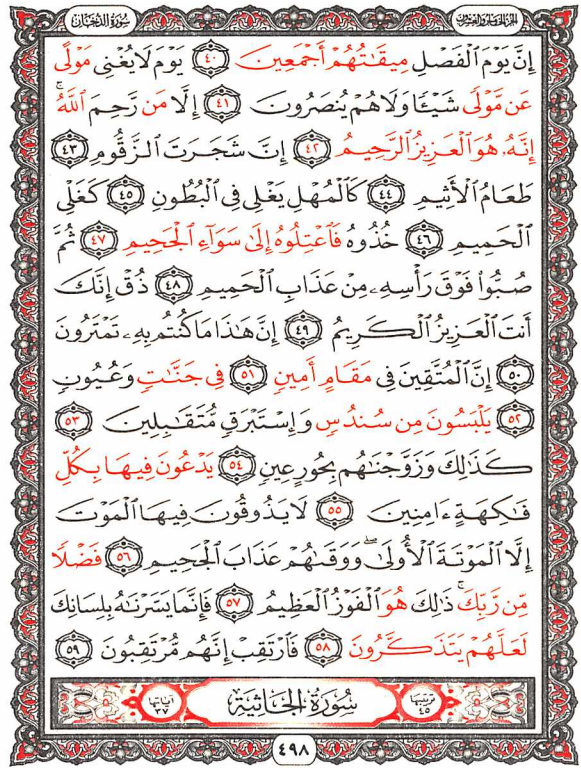 سُورَةُ الدُّخَانِ
الجزء الخامس والعشرون
إِنَّ يَوْمَ الْفَصْلِ مِيقَٰتُهُمْ أَجْمَعِينَ ٤٠ يَوْمَ لَا يُغْنِى مَوْلًى
عَن مَّوْلًى شَيْـًٔا وَلَا هُمْ يُنصَرُونَ ٤١ إِلَّا مَن رَّحِمَ اللَّهُ ۚ
إِنَّهُۥ هُوَ الْعَزِيزُ الرَّحِيمُ ٤٢ إِنَّ شَجَرَتَ الزَّقُّومِ ٤٣
طَعَامُ الْأَثِيمِ ٤٤ كَالْمُهْلِ يَغْلِى فِى الْبُطُونِ ٤٥ كَغَلْىِ
الْحَمِيمِ ٤٦ خُذُوهُ فَاعْتِلُوهُ إِلَىٰ سَوَآءِ الْجَحِيمِ ٤٧ ثُمَّ
صُبُّوا۟ فَوْقَ رَأْسِهِۦ مِنْ عَذَابِ الْحَمِيمِ ٤٨ ذُقْ إِنَّكَ
أَنتَ الْعَزِيزُ الْكَرِيمُ ٤٩ إِنَّ هَٰذَا مَا كُنتُم بِهِۦ تَمْتَرُونَ
٥٠ إِنَّ الْمُتَّقِينَ فِى مَقَامٍ أَمِينٍ ٥١ فِى جَنَّٰتٍ وَعُيُونٍ
٥٢ يَلْبَسُونَ مِن سُندُسٍ وَإِسْتَبْرَقٍ مُّتَقَٰبِلِينَ ٥٣
كَذَٰلِكَ وَزَوَّجْنَٰهُم بِحُورٍ عِينٍ ٥٤ يَدْعُونَ فِيهَا بِكُلِّ
فَٰكِهَةٍ ءَامِنِينَ ٥٥ لَا يَذُوقُونَ فِيهَا الْمَوْتَ
إِلَّا الْمَوْتَةَ الْأُولَىٰ ۖ وَوَقَىٰهُمْ عَذَابَ الْجَحِيمِ ٥٦ فَضْلًا
مِّن رَّبِّكَ ۚ ذَٰلِكَ هُوَ الْفَوْزُ الْعَظِيمُ ٥٧ فَإِنَّمَا يَسَّرْنَٰهُ بِلِسَانِكَ
لَعَلَّهُمْ يَتَذَكَّرُونَ ٥٨ فَارْتَقِبْ إِنَّهُم مُّرْتَقِبُونَ ٥٩
ترتيبها ٤٥ سُورَةُ الجَاثِيَةِ آياتها ٣٧
٤٩٨